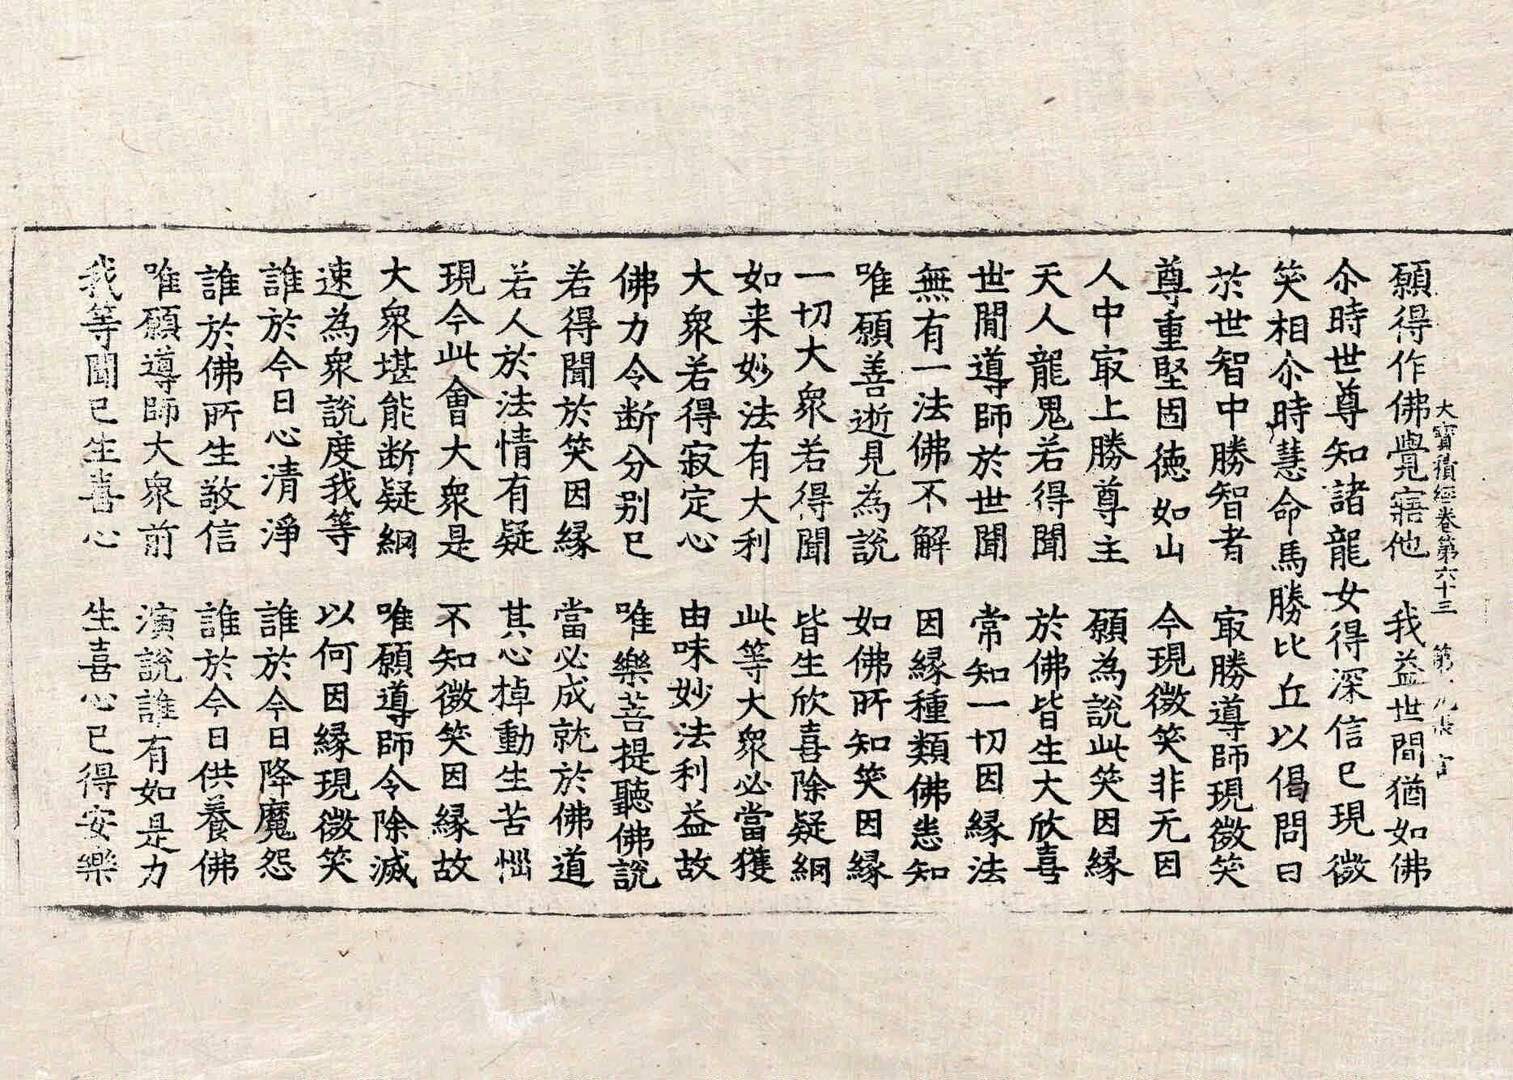 願得作佛覺寤他　我益世間猶如佛
大寶積經卷第六十三　第　張　官
尒時世尊知諸龍女得深信已現微
笑相尒時慧命馬勝比丘以偈問曰
於世智中勝智者　冣勝導師現微笑
尊重堅固徳如山　今現微笑非无因
人中冣上勝尊主　願為說此笑因緣
天人龍鬼若得聞　於佛皆生大欣喜
世間導師於世間　常知一切因緣法
無有一法佛不解　因緣種類佛悉知
唯願善逝見為說　如佛所知笑因緣
一切大衆若得聞　皆生欣喜除疑網
如来妙法有大利　此等大衆必當獲
大衆若得寂定心　由味妙法利益故
佛力令断分别已　唯樂菩提聽佛說
若得聞於笑因緣　當必成就於佛道
若人於法情有疑　其心掉動生苦惱
現今此會大衆是　不知微笑因緣故
大衆堪能断疑網　唯願導師令除滅
速為衆說度我等　以何因緣現微笑
誰於今日心清淨　誰於今日降魔怨
誰於佛所生敬信　誰於今日供養佛
唯願導師大衆前　演說誰有如是力
我等聞已生喜心　生喜心已得安樂